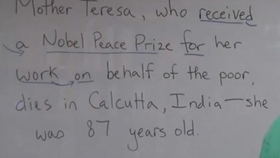 Mother Teresa, who received
a Nobel Peace Prize for her
work on behalf of the poor,
dies in Calcutta, India—she
was 87 years old.